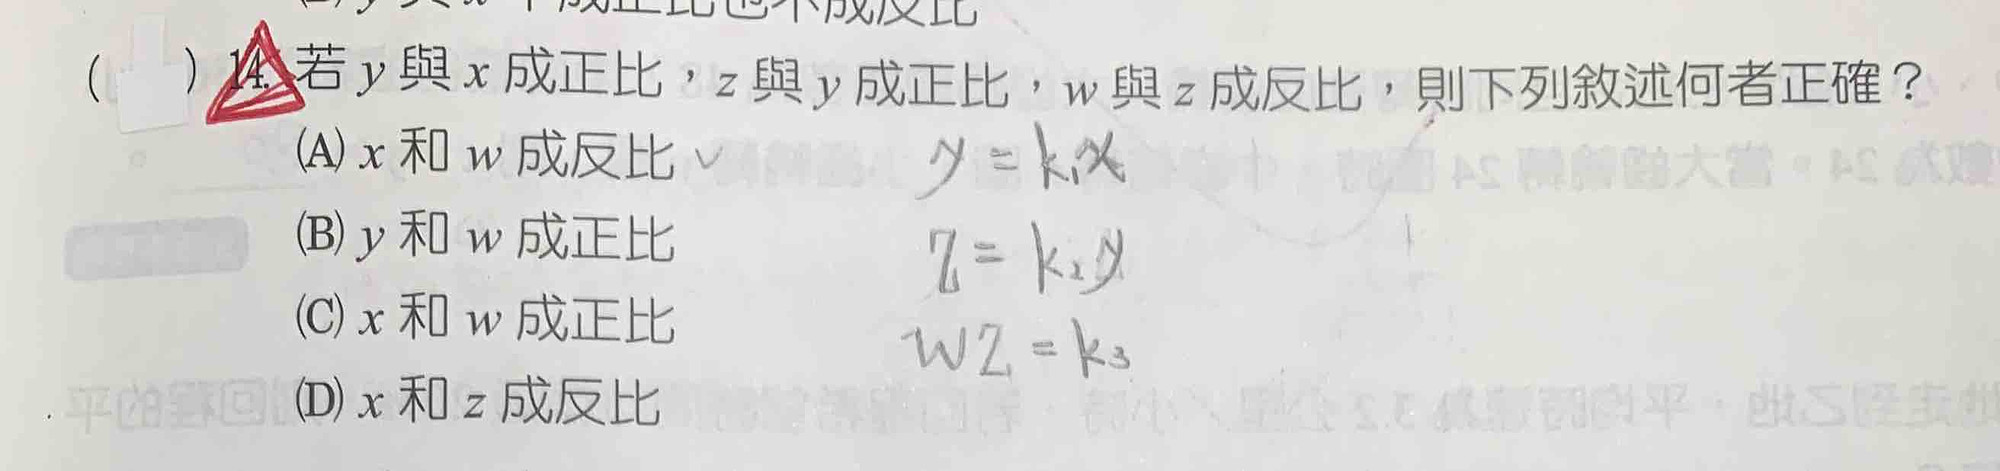 ( ) 14. 若 y 與 x 成正比，z 與 y 成正比，w 與 z 成反比，則下列敘述何者正確？
(A) x 和 w 成反比 ✓
y = k₁x
(B) y 和 w 成正比
z = k₂y
(C) x 和 w 成正比
wz = k₃
(D) x 和 z 成反比